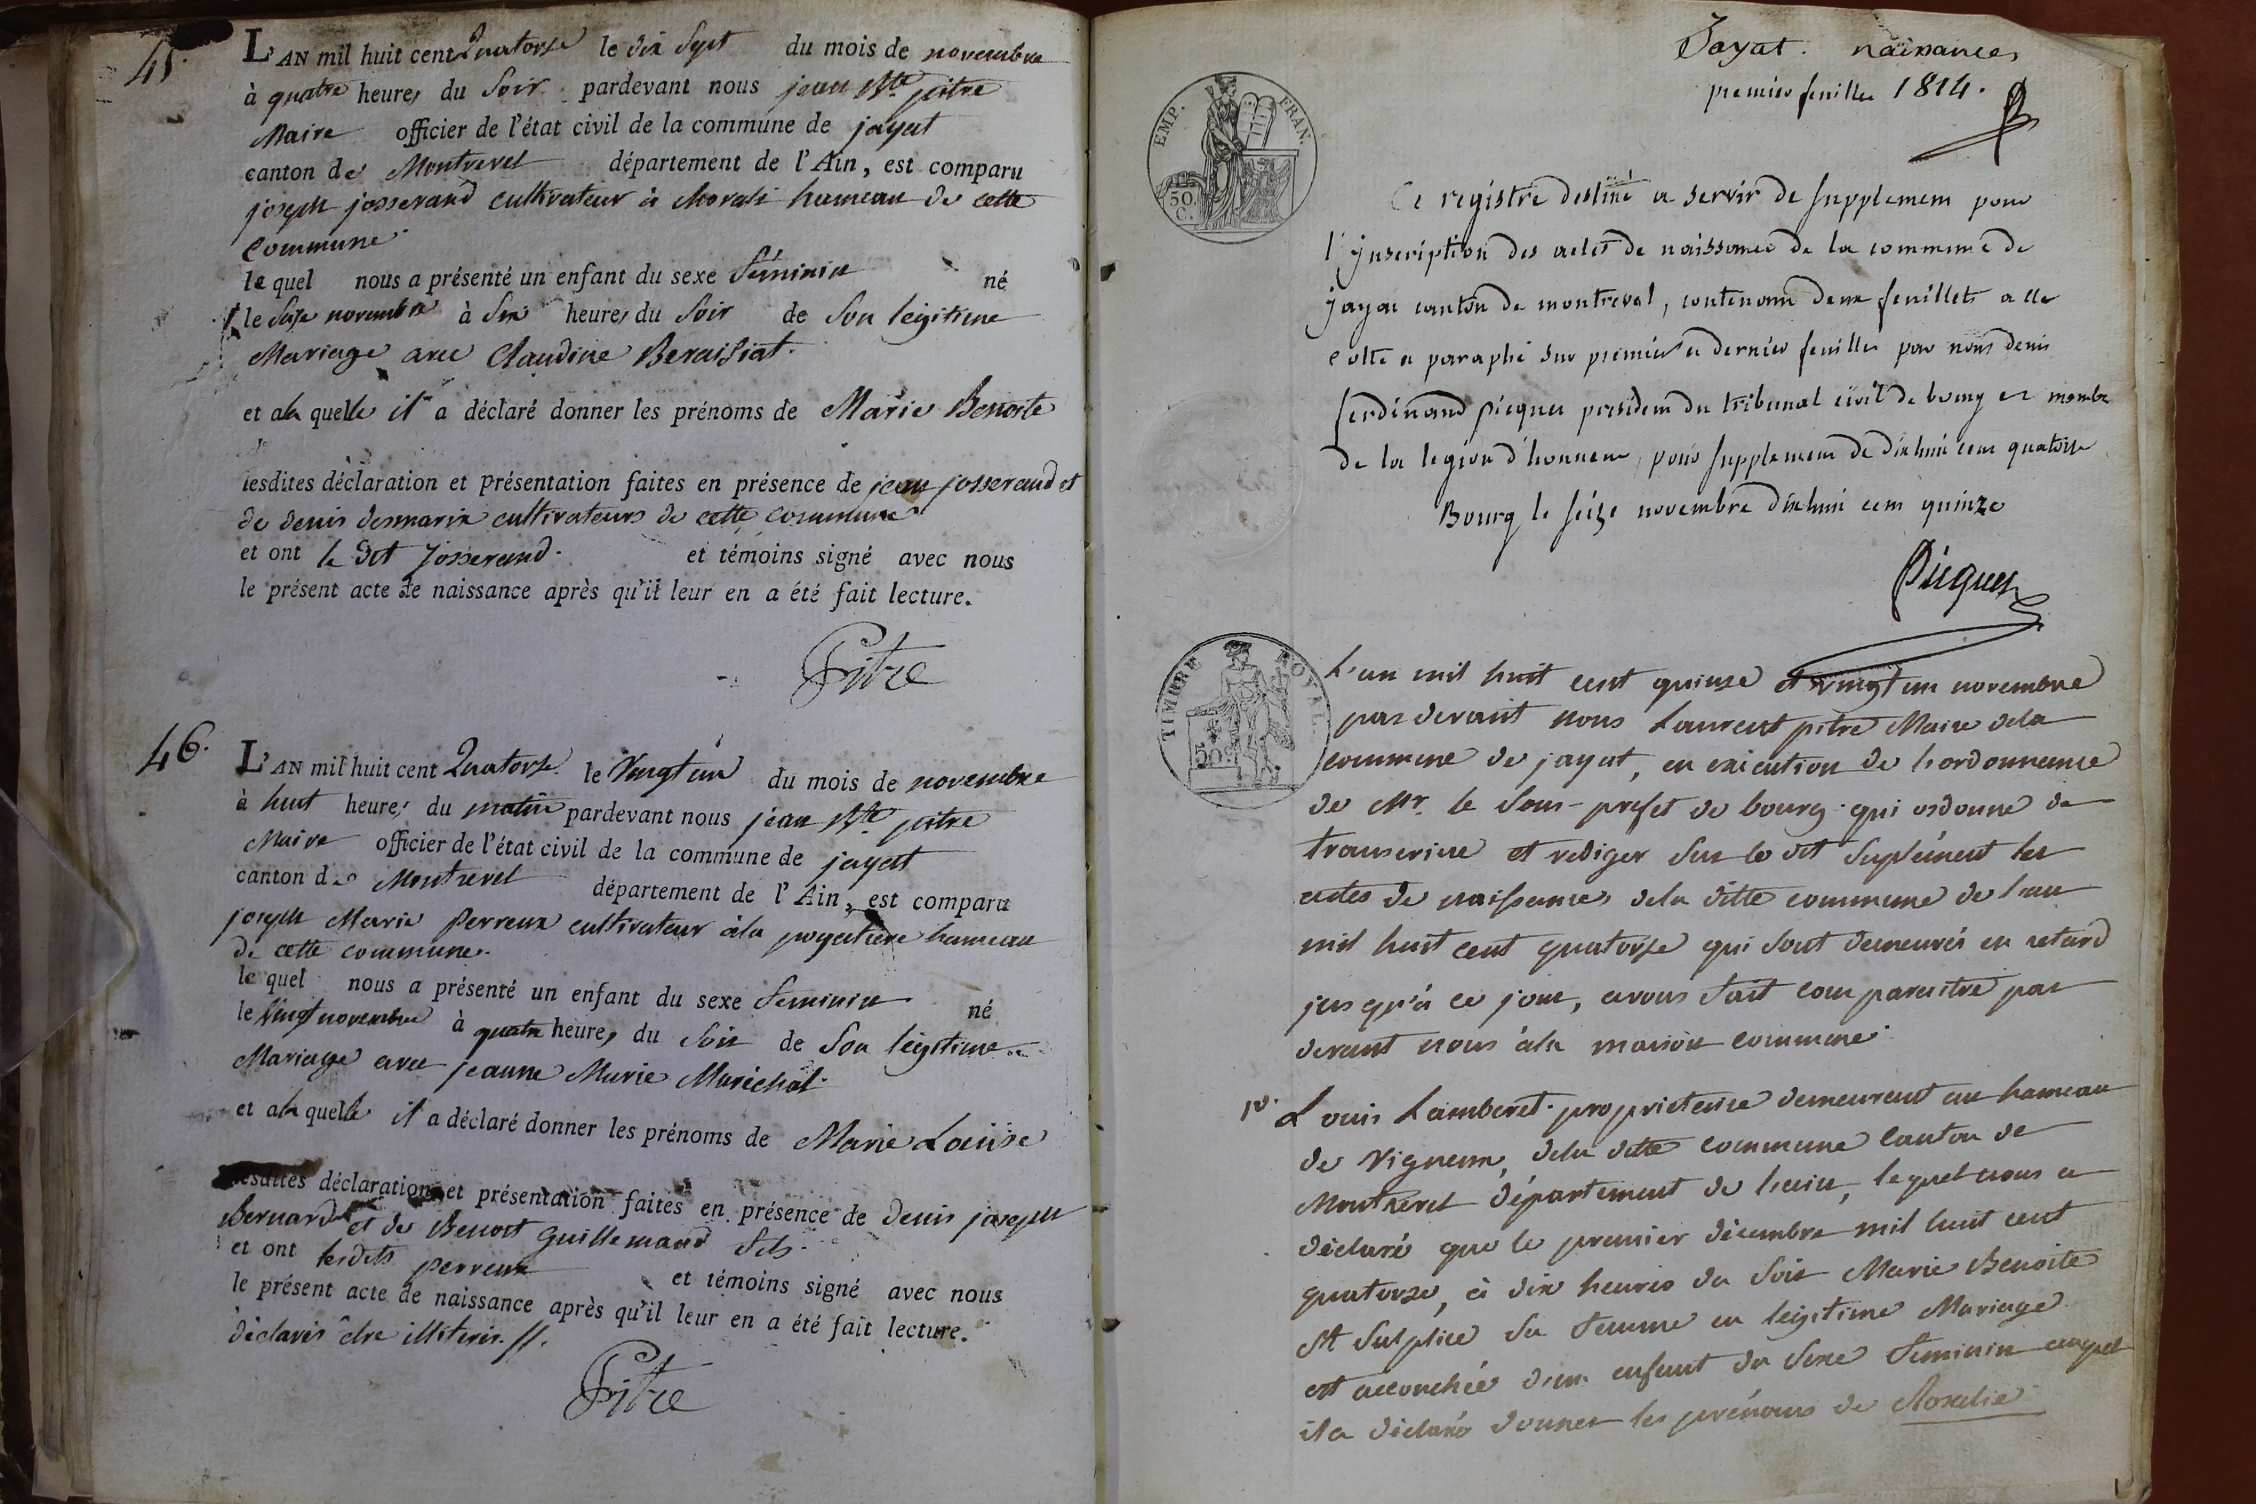 45.
L'AN mil huit cent Quatorze le dix Sept du mois de novembre
à quatre heures du Soir pardevant nous jean Bte pitre
Maire officier de l'état civil de la commune de jayat
canton de Montrevel département de l'Ain, est comparu
joseph josserand cultivateur à Morali hameau de cette
commune.
le quel nous a présenté un enfant du sexe féminin né
le Seize novembre à Six heures du Soir de Son légitime
Mariage avec Claudine Beraisiat.
et a la quelle il a déclaré donner les prénoms de Marie Benoite
lesdites déclaration et présentation faites en présence de jean josserand et
de denis desmaris cultivateurs de cette commune
et ont le dit josserand. et témoins signé avec nous
le présent acte de naissance après qu'il leur en a été fait lecture.
Pitre
46.
L'AN mil huit cent Quatorze le Vingt un du mois de novembre
à huit heures du matin pardevant nous jean Bte pitre
Maire officier de l'état civil de la commune de jayat
canton de Montrevel département de l'Ain, est comparu
joseph Marie Perreux cultivateur à la poyatiere hameau
de cette commune.
le quel nous a présenté un enfant du sexe féminin né
le Vingt novembre à quatre heures du Soir de Son légitime
Mariage avec jeanne Marie Maréchal.
et a la quelle il a déclaré donner les prénoms de Marie Louise
lesdites déclaration et présentation faites en présence de denis joseph
Bernard et de Benoit Guillemaud fils.
et ont lesdits perreux et témoins signé avec nous
le présent acte de naissance après qu'il leur en a été fait lecture.
déclarés être illitérés.//.
Pitre
Jayat. naissances
premier feuillet 1814.
EMP. FRAN.
50. C.
Ce registre destiné a servir de Supplement pour
l'Inscription des actes de naissance de la commune de
jayat canton de montrevel, contenant deux feuillets a ete
cotte et paraphé sur premier et dernier feuillet par nous denis
ferdinand picquet president du tribunal civil de bourg et membre
de la legion d'honneur, pour Supplement de dix huit cent quatorze
Bourg le seize novembre dix huit cent quinze
Picquet
TIMBRE ROYAL.
50c
L'an mil huit cent quinze et vingt un novembre
par devant nous Laurent pitre Maire de la
commune de jayat, en exécution de l'ordonnance
de Mr. le Sous-prefet de bourg qui ordonne de
transcrire et rediger Sur le dit Suplément les
actes de naissances de la ditte commune de l'an
mil huit cent quatorze qui Sont demeurés en retard
jusqu'à ce jour, avons fait comparaitre par
devant nous à la maison commune.
1º. Louis Lamberet. proprietaire demeurant au hameau
de Vigneux, de la ditte commune Canton de
Montrevel département de l'ain, lequel nous a
déclaré que le premier décembre mil huit cent
quatorze, à dix heures du Soir Marie Benoite
St Sulpice Sa femme en légitime Mariage
est accouchée d'un enfant du Sexe féminin auquel
il a déclaré donner les prénoms de Rosalie